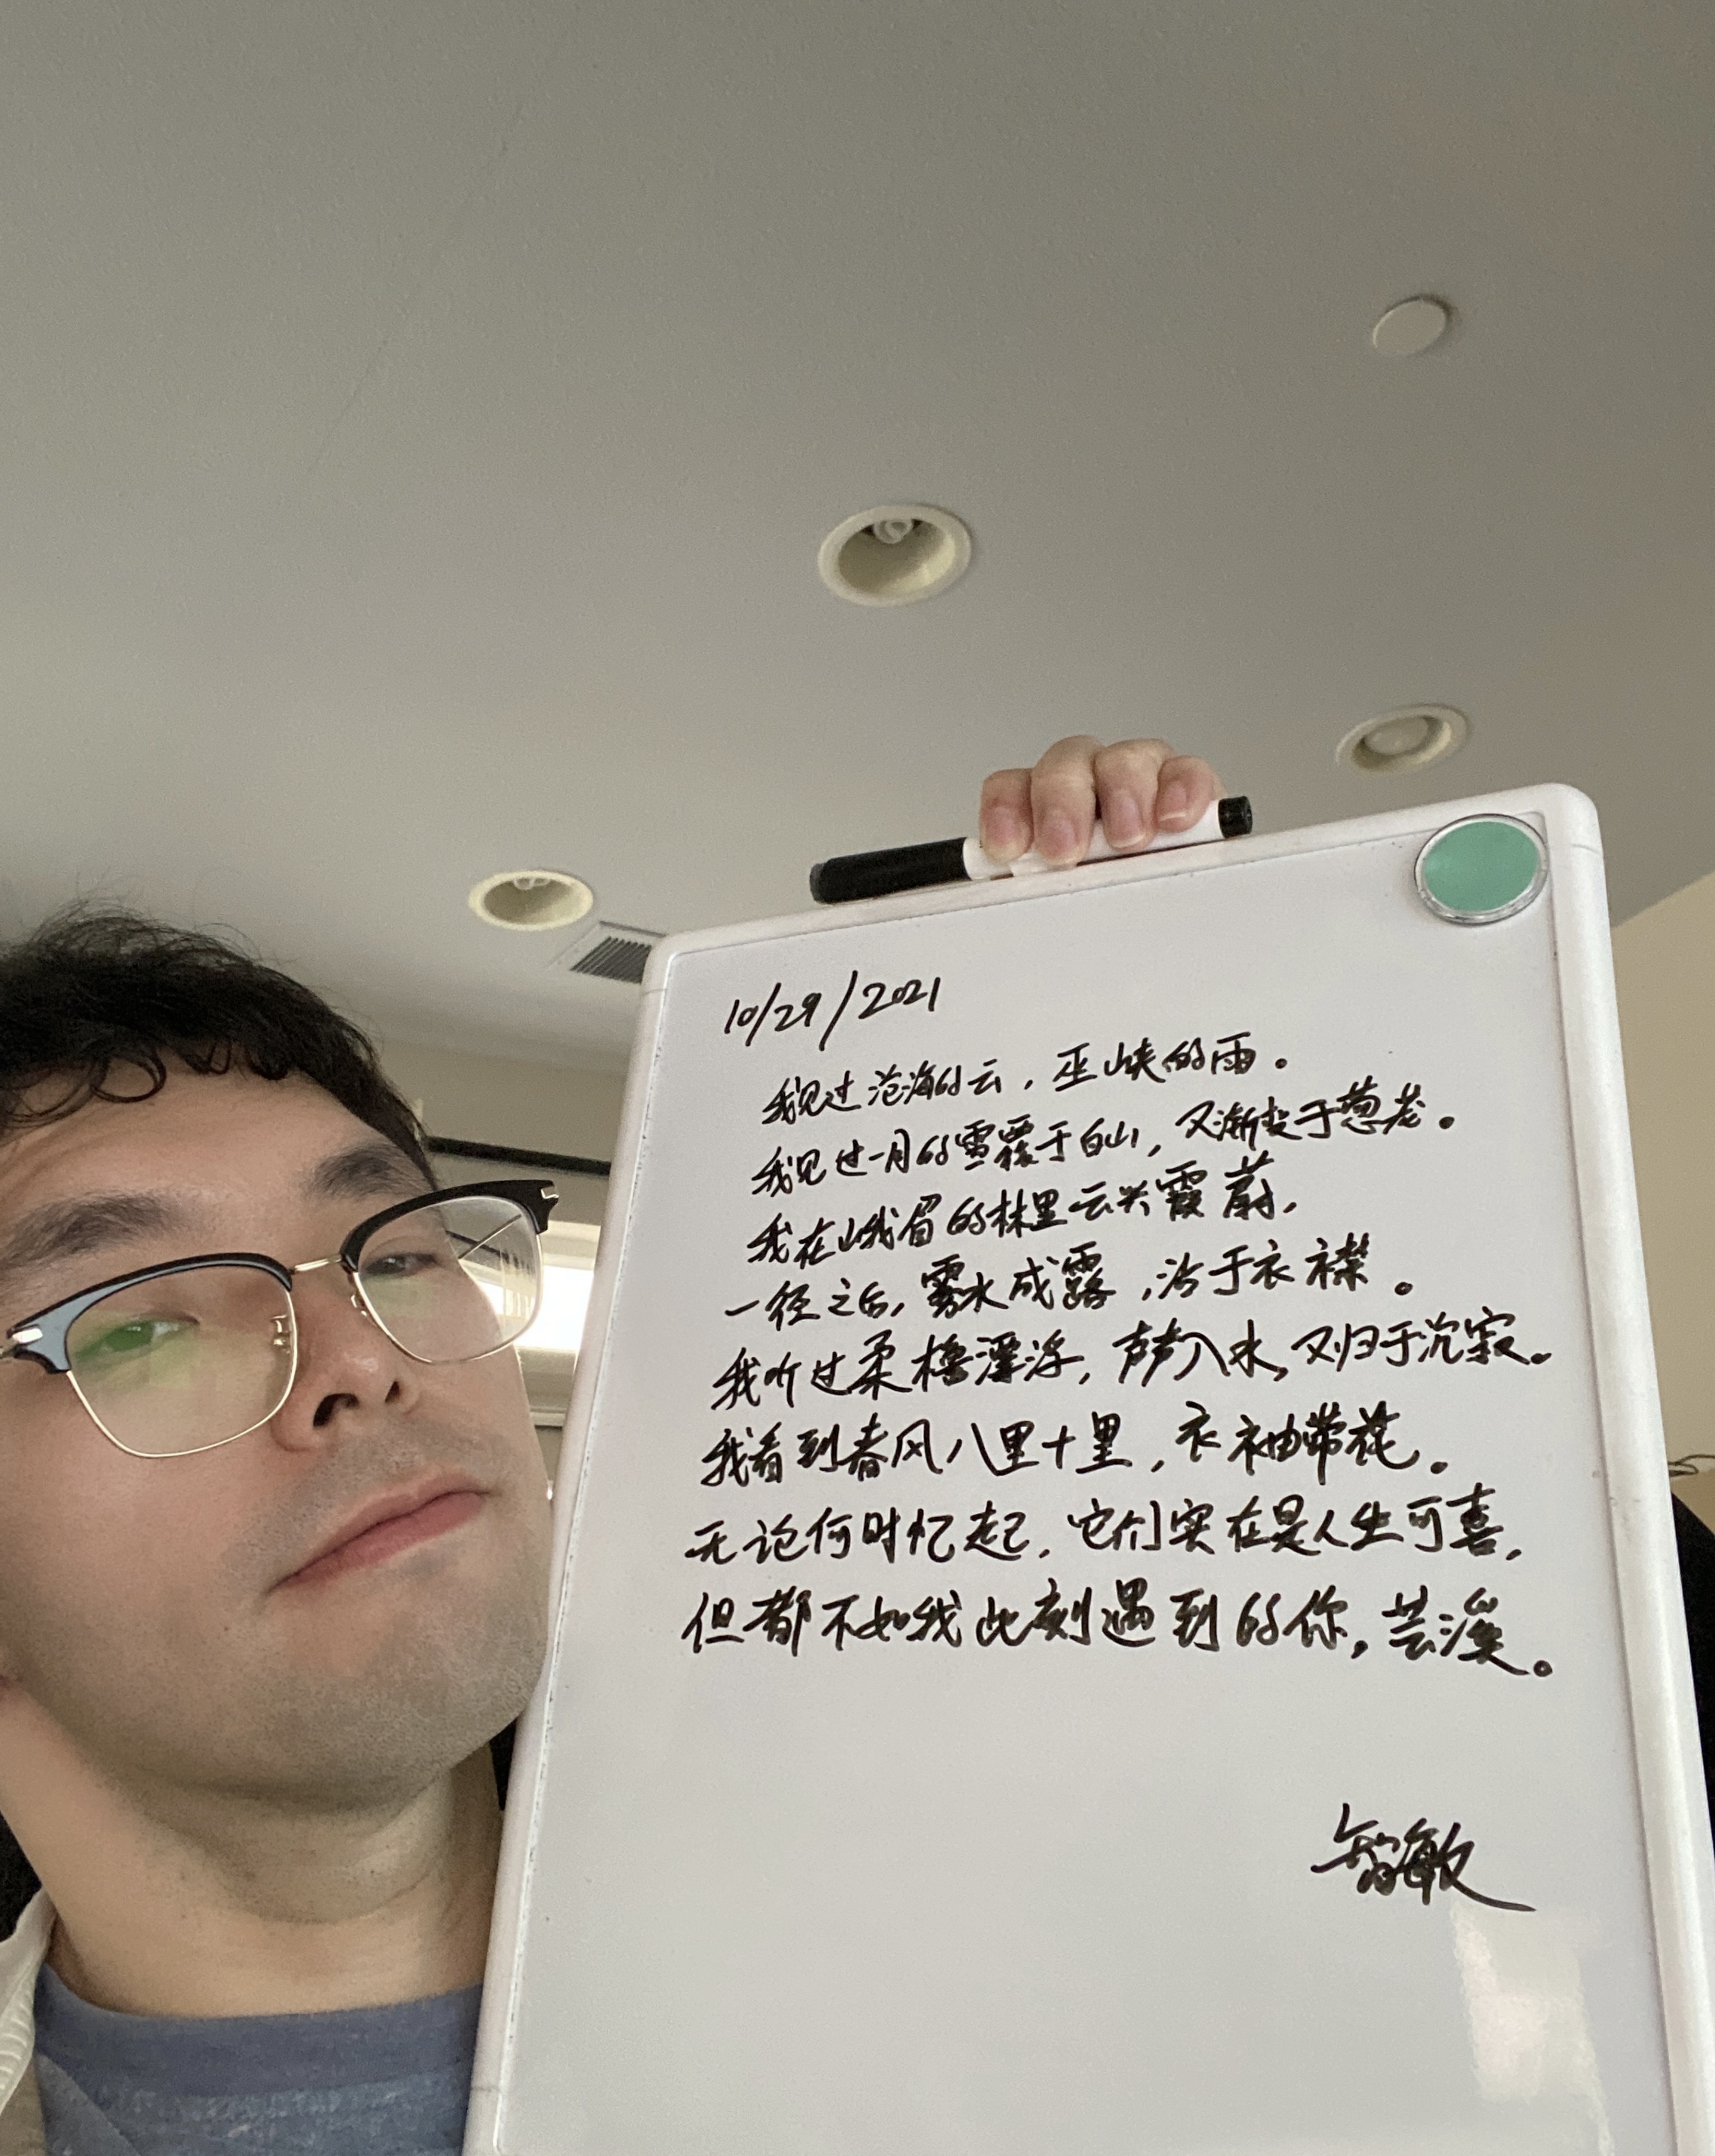 10/29/2021
我见过沧海的云，巫峡的雨。
我见过一月的雪覆于白山，又渐变于葱茏。
我在峨眉的林里云兴霞蔚，
一径之后，雾水成露，沾于衣襟。
我听过柔橹浮，声声入水，又归于沉寂。
我看到春风八里十里，衣袖带花。
无论何时忆起，它们实在是人生可喜，
但都不如我此刻遇到的你，芸溪。
智敏